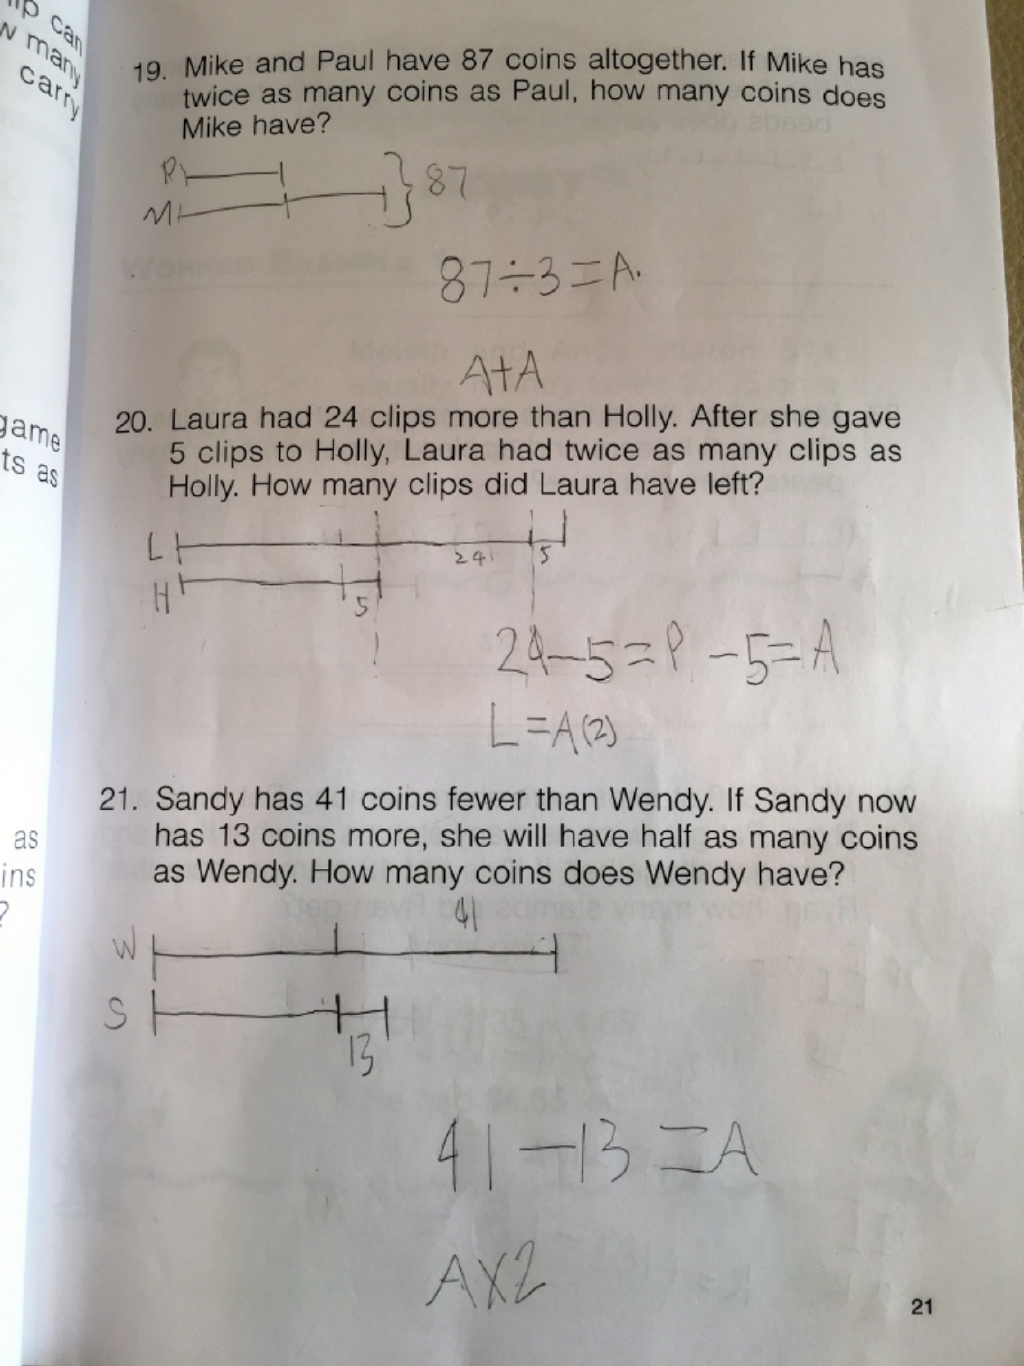 ip can
w many
carry
19. Mike and Paul have 87 coins altogether. If Mike has
twice as many coins as Paul, how many coins does
Mike have?
P
87
M
87÷3=A.
A+A
game
ts as
20. Laura had 24 clips more than Holly. After she gave
5 clips to Holly, Laura had twice as many clips as
Holly. How many clips did Laura have left?
L
24 5
H
5
24-5=P-5=A
L=A(2)
as
ins
?
21. Sandy has 41 coins fewer than Wendy. If Sandy now
has 13 coins more, she will have half as many coins
as Wendy. How many coins does Wendy have?
41
W
S
13
41-13=A
AX2
21